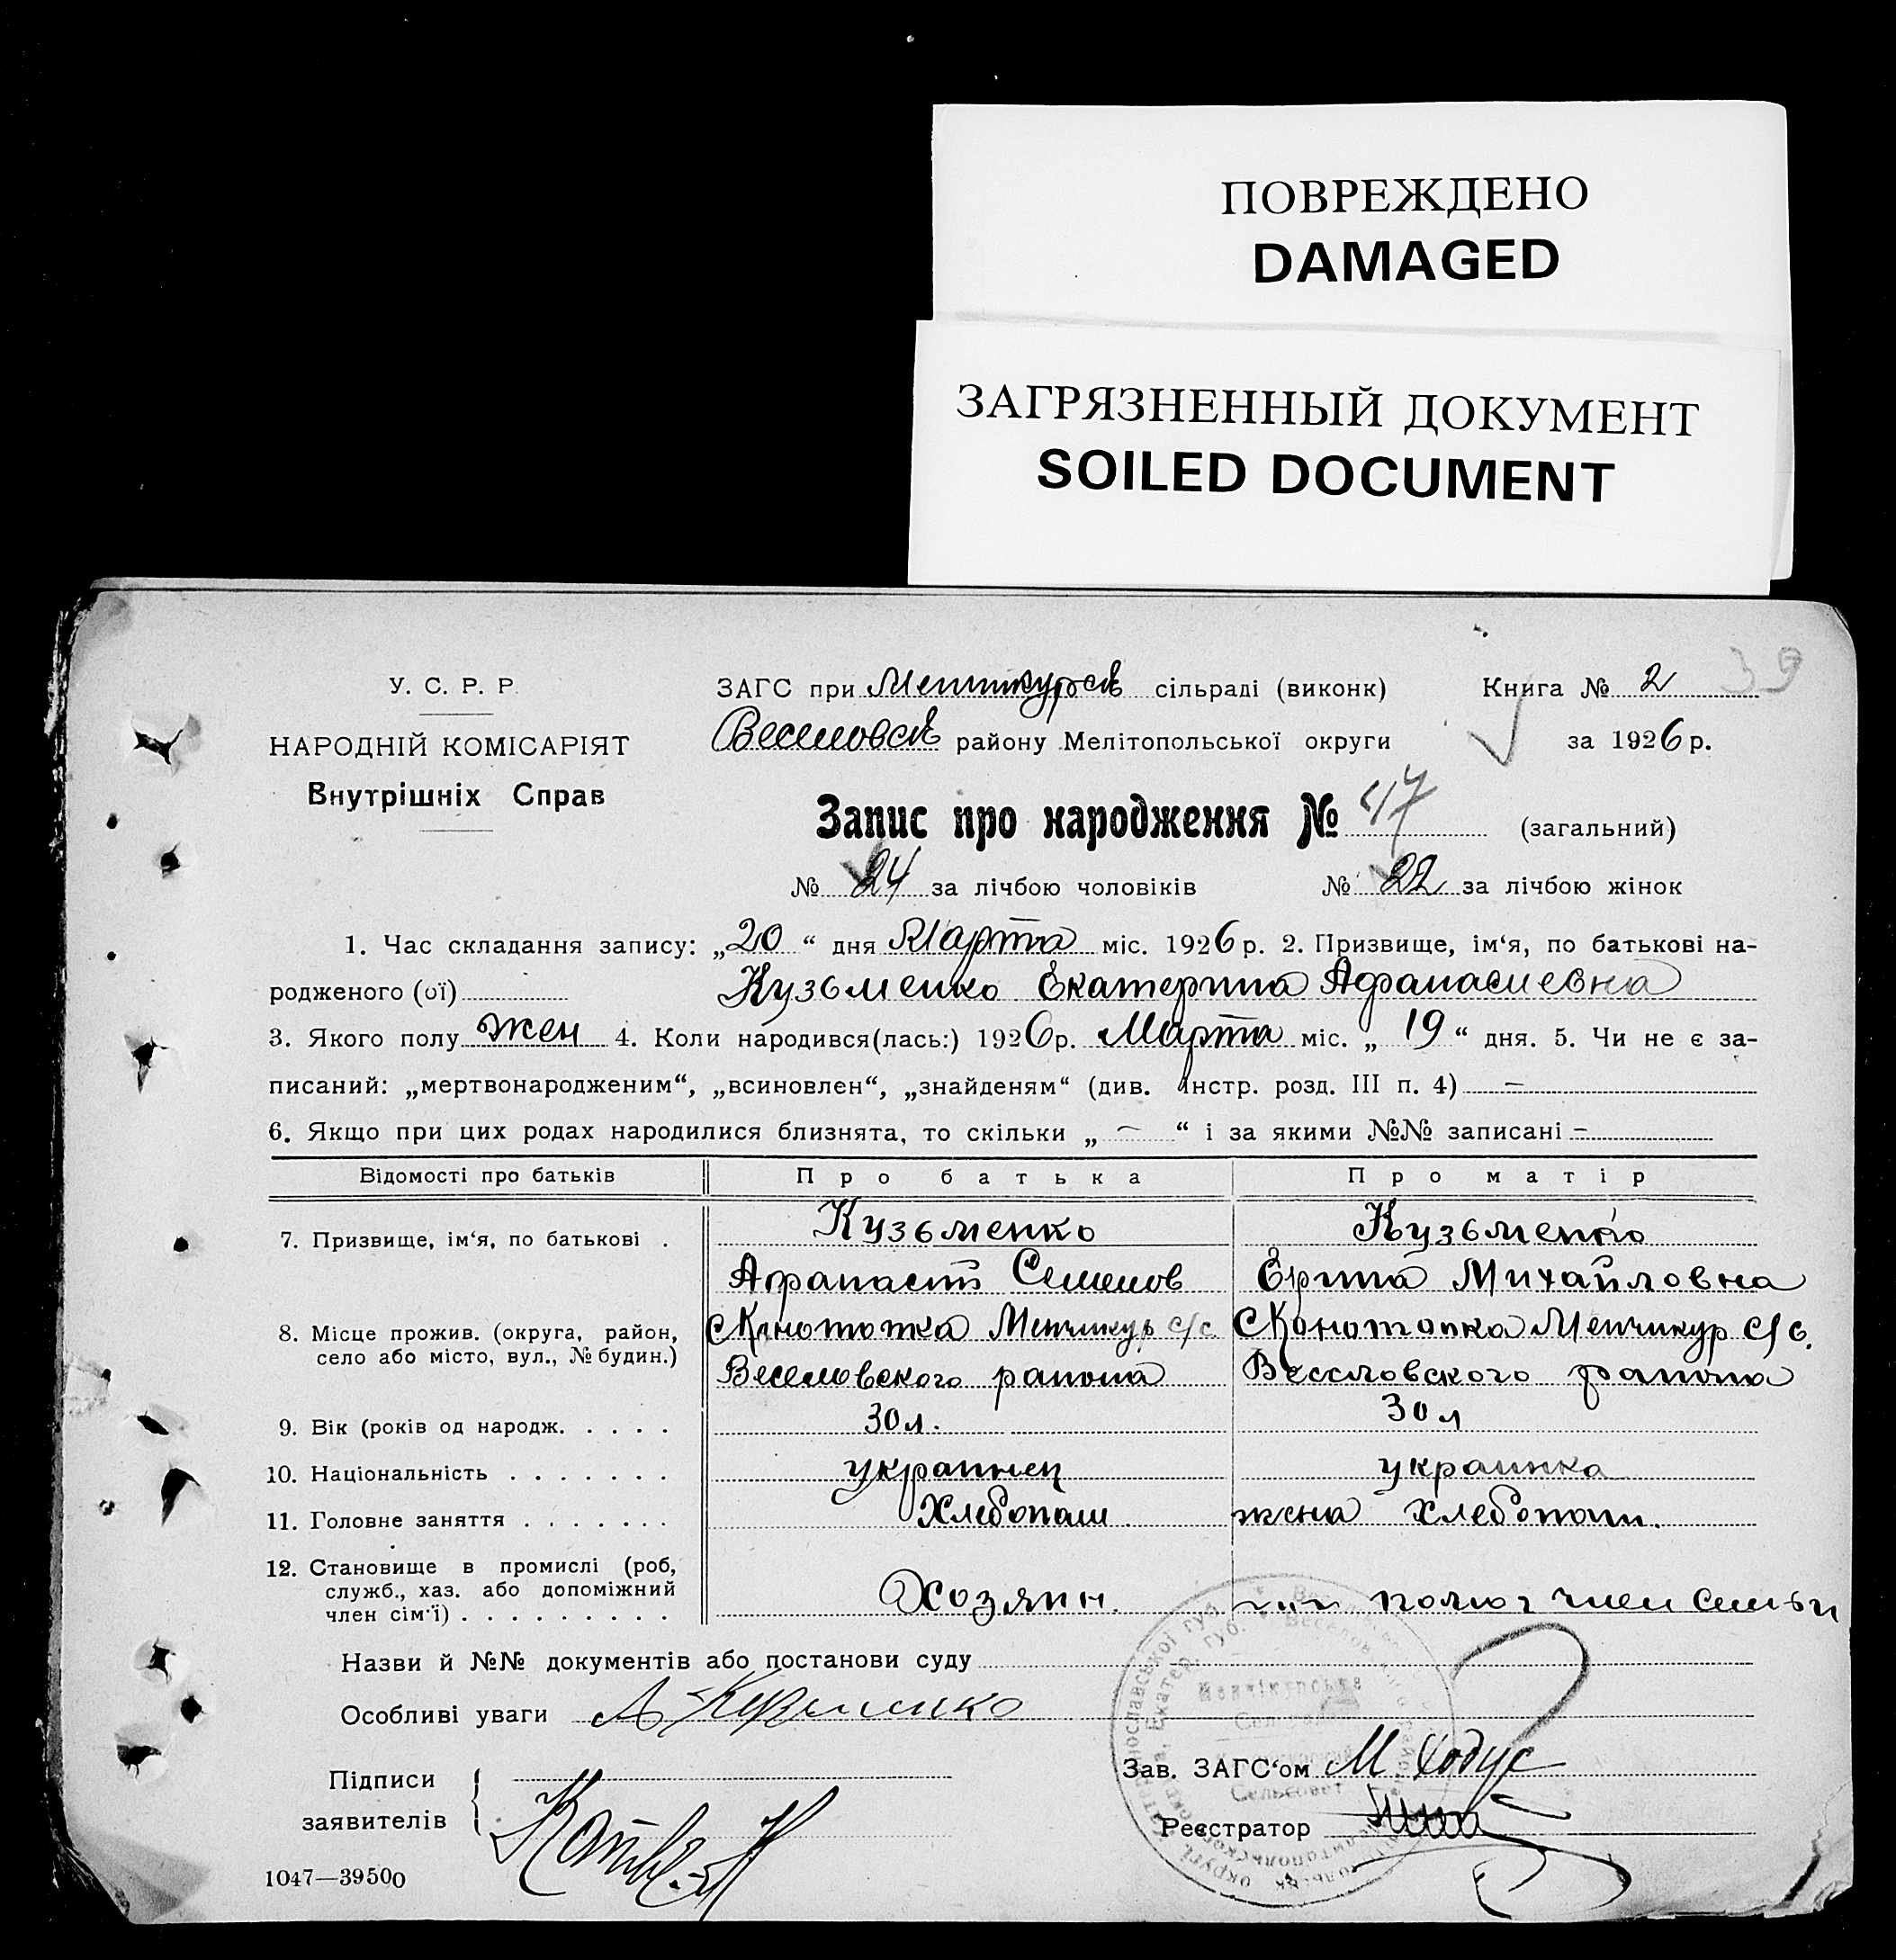 ПОВРЕЖДЕНО
DAMAGED
ЗАГРЯЗНЕННЫЙ ДОКУМЕНТ
SOILED DOCUMENT
39
У. С. Р. Р.
НАРОДНІЙ КОМІСАРІЯТ
Внутрішніх Справ
ЗАГС при сільраді (виконк) Книга № 2
Веселовск району Мелітопольської округи за 1926 р.
Запис про народження № 47 (загальний)
№ 24 за лічбою чоловіків № 22 за лічбою жінок
1. Час складання запису: „20“ дня Марта міс. 1926 р. 2. Призвище, ім‘я, по батькові на-
родженого (ої) Кузьменко Екатерина Афанасиевна
3. Якого полу жен 4. Коли народився(лась:) 1926 р. Марта міс. „19“ дня. 5. Чи не є за-
писаний: „мертвонародженим“, „всиновлен“, „знайденям“ (див. Інстр. розд. III п. 4) —
6. Якщо при цих родах народилися близнята, то скільки „—“ і за якими №№ записані —
Відомості про батьків Про батька Про матір
7. Призвище, ім‘я, по батькові . Кузьменко Кузьменко
Афанасий Семенов Михайловна
8. Місце прожив. (округа, район, с Конотопка Менчикур с/с. с Конотопка Менчикур с/с.
село або місто, вул., № будин.) Веселовского района Веселовского района
9. Вік (років од народж. . . . . 30 л. 30 л
10. Національність . . . . . . . украинец украинка
11. Головне заняття . . . . . . . Хлебопаш жена хлебопаш.
12. Становище в промислі (роб,
служб., хаз. або допоміжний Хозяин. член семьи
член сім‘ї) . . . . . . . . .
Назви й №№ документів або постанови суду
Особливі уваги
Підписи
заявителів
Зав. ЗАГС‘ом М Ходус
Реєстратор
Сельсовет
1047—39500